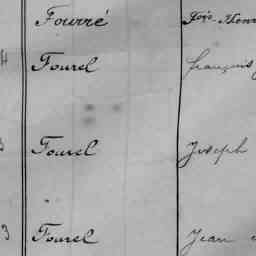 Fourré
4 Fourel François
3 Fourel Joseph
3 Fourel Jean